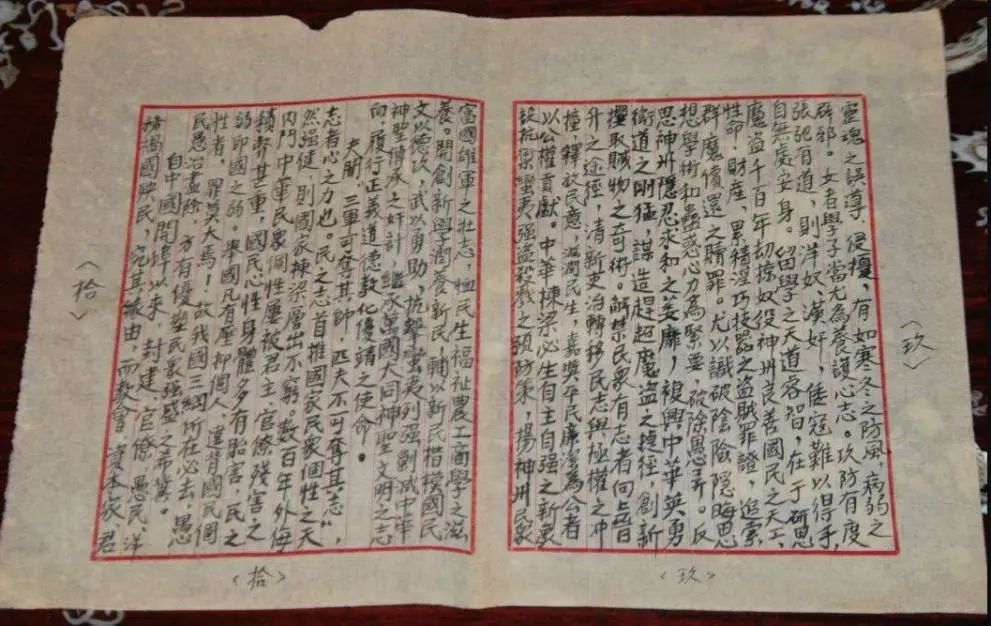 〈玖〉
靈魂之誤導、侵擾,有如寒冬之防風,病弱之
辟邪。女者學子當尤為養護心志。攻防有度
張弛有道,則洋奴,漢奸,倭寇難以得手,
自無處安身。留學之天道容智,在于研思
魔盜千百年劫掠奴役神州良善國民之天工、
性命,財産,累積淫巧技器之盜賊罪證,追索
群魔償還之贖罪。尤以識破陰險隱晦思
想學術和蠱惑心力為緊要,破除愚弄。反
思神州隱忍求和之萎靡,複興中華英勇
衛道之剛猛,謀造趕超魔盜之捷徑,創新
攫取賊物之奇術。解禁民衆有志者向上晋
升之途徑,清新吏治轉移民志與極權之冲
撞,釋放民意,滋潤民生,嘉奬平民廉潔為公者
以公權貢獻。中華棟梁必生自主自强之新象
故抗禦蠻夷强盜殺戮之預防策,揚神州民衆
〈玖〉
富國雄軍之壯志,恤民生福祉農工商學之滋
養。開創新學潤養新民,輔以新民楷模國民
文以德攻,武以勇助,抗擊蠻夷列强剿滅中華
神聖傳承之奸計,繼承萬國大同神聖文明之志
向,履行正義道德教化優靖之使命。
夫聞,三軍可奪其帥,匹夫不可奪其志",
志者心之力也。民之志首推國家民衆個性之天
然强健,則國家棟梁層出不窮。數百年外侮
内鬥中華民衆個性屢被君主,官僚殘害之
積弊甚重,國民心性身體多有胎害,民之
弱即國之弱。舉國凡有壓抑個人、違背國民個
性者,罪莫大焉!故我國三綱所在必去,愚
民愚治盡除,方有優塑民衆强盛之希冀。
自中國開埠以來,封建,官僚,愚民,洋
務禍國殃民,究其緣由,而教會,資本家、君
〈拾〉
〈拾〉